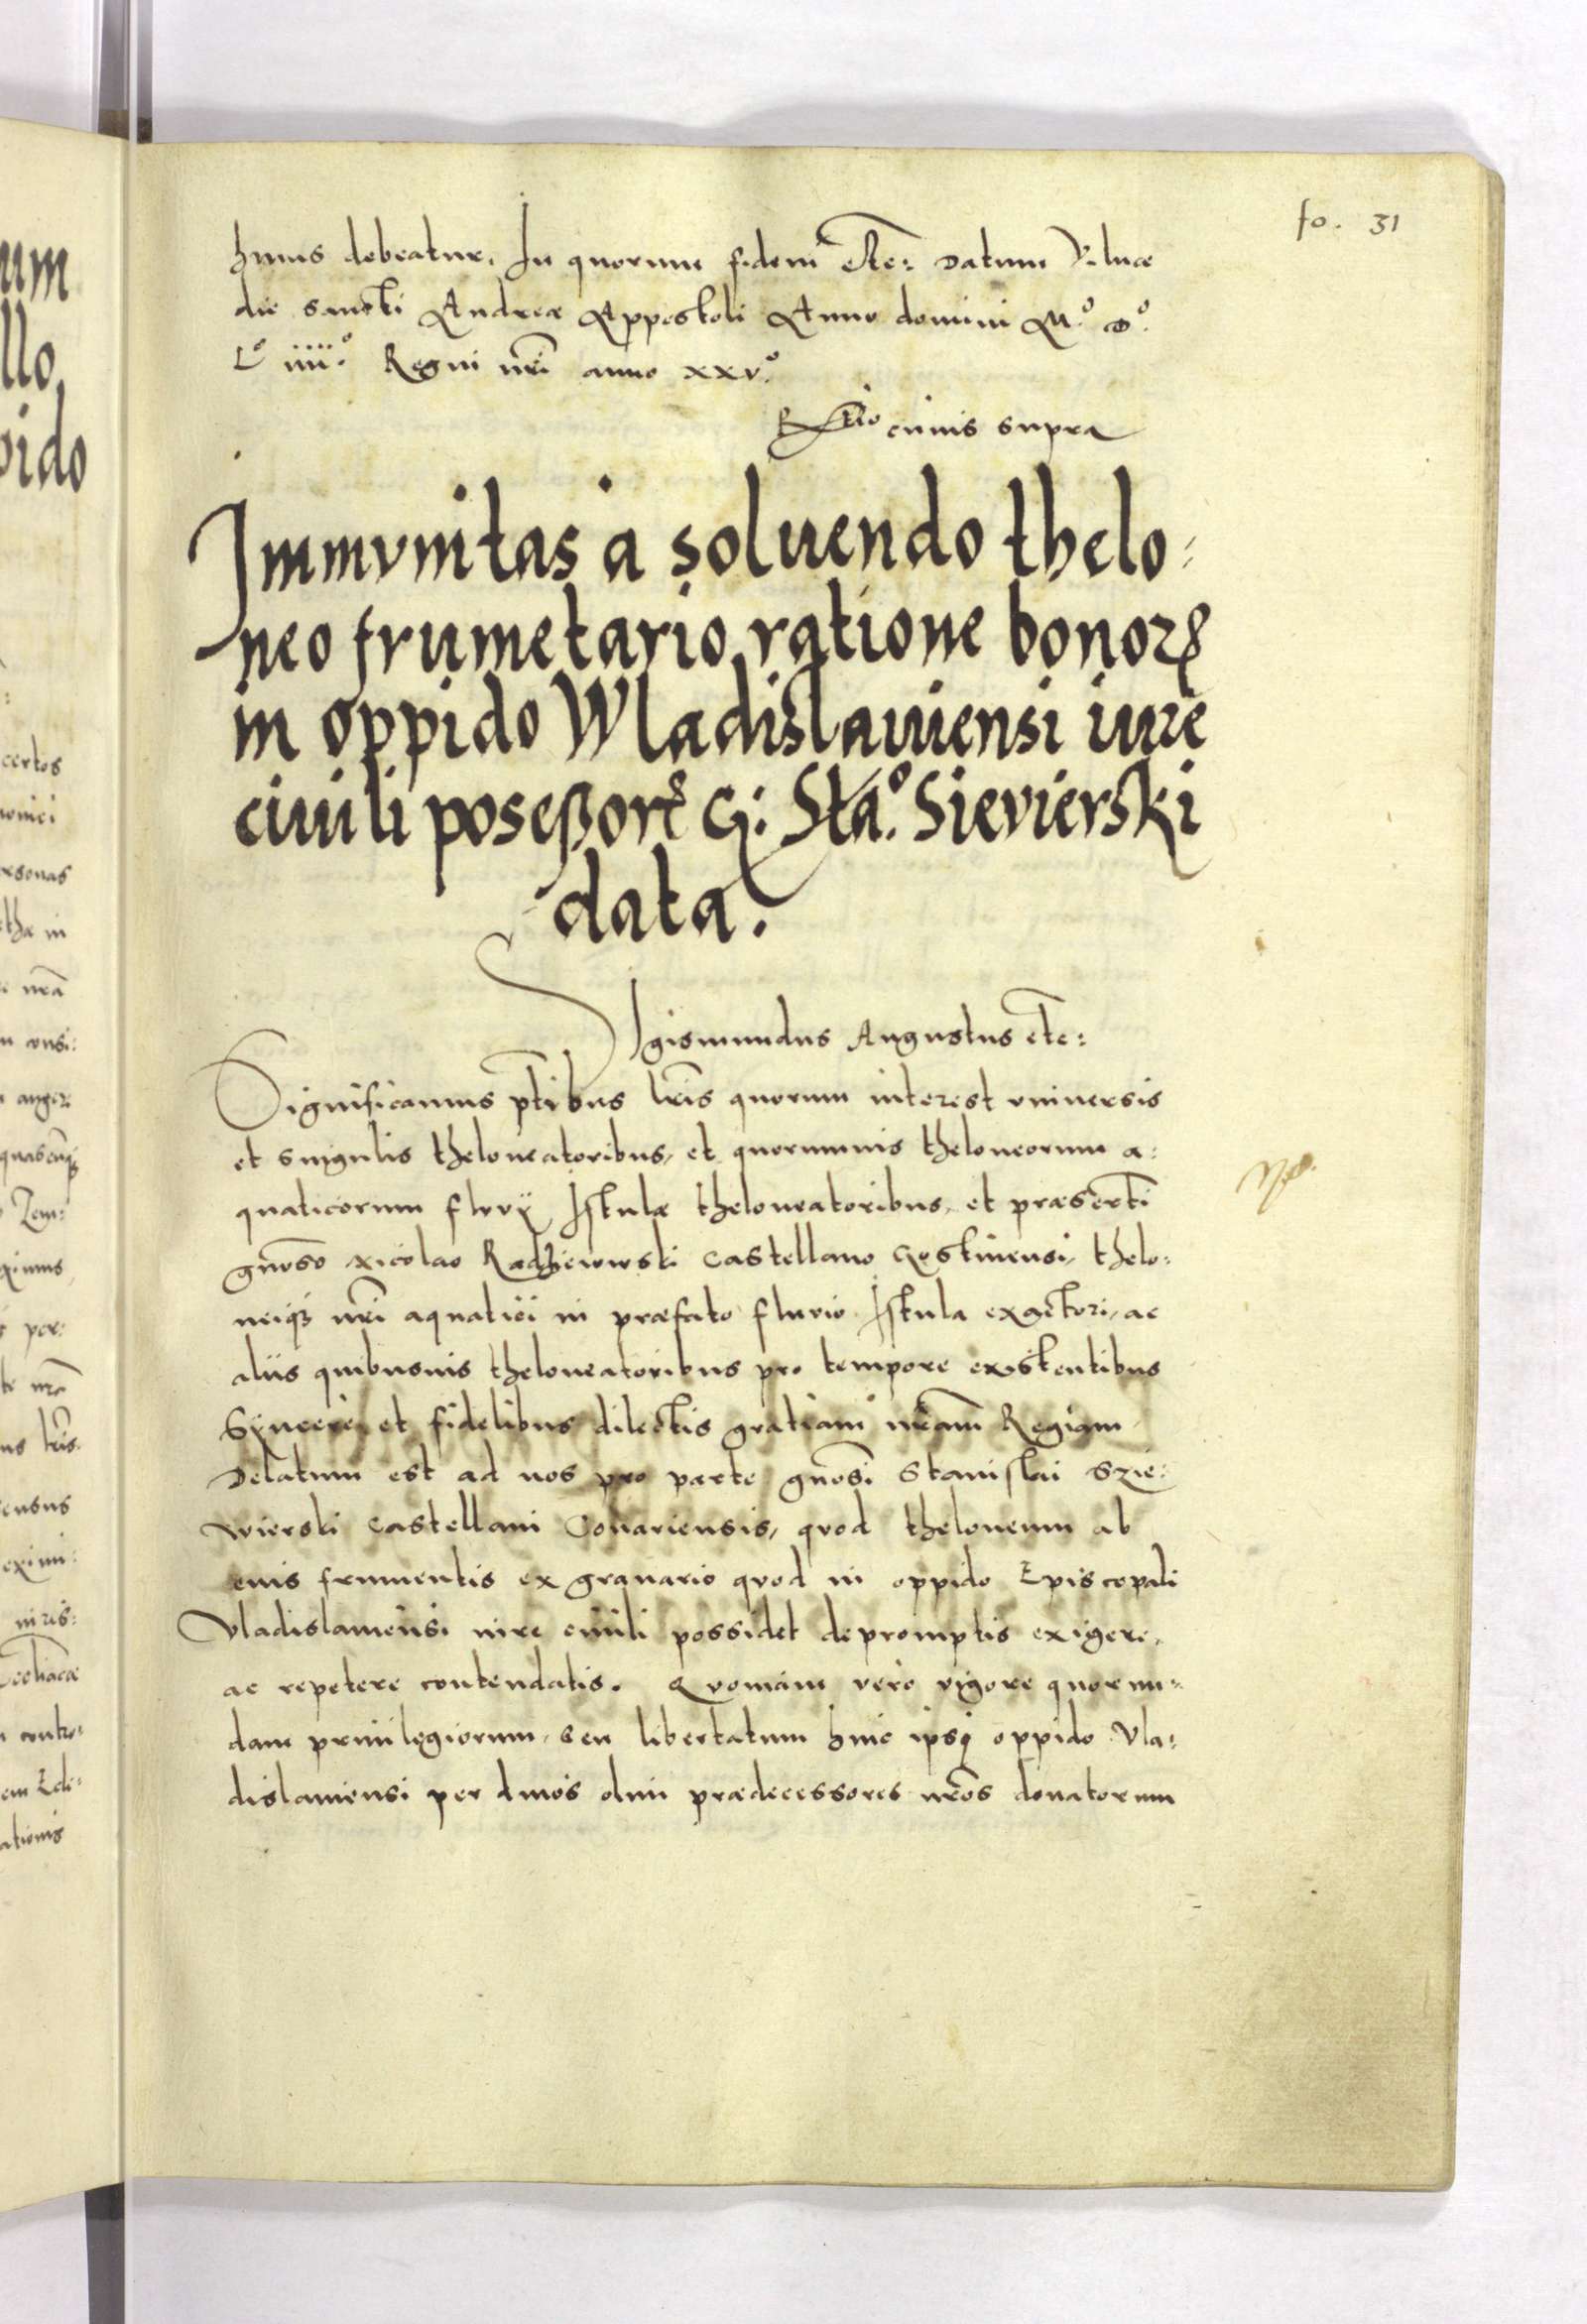 fo. 31
huius debeatur. In quorum fidem etc: Datum Vilnae
die sancti Andreae Appostoli Anno domini M.º D.º
Lº iiii.º Regni nri anno xxv.º
Rtio cuius supra
Immvnitas a soluendo thelo:
neo frumetario ratione bonorꝝ
in oppido Wladislauiensi iure
ciuili poseßorꝝ G: Sta.º Sievierski
data.
Sigismundus Augustus etc:
Significamus ptibus lris quorum interest vniuersis
et singulis theloneatoribus, et quorumuis theloneorum a:
quaticorum fluvÿ Istulae theloneatoribus, et praeserti
gnoso Nicolao Radziewski Castellano Gostinensi, thelo:
neiqꝫ nri aquatici in praefato fluvio Istula exactori, ac
aliis quibusuis theloneatoribus pro tempore existentibus
Syncere et fidelibus dilectis gratiam nram Regiam
Delatum est ad nos pro parte gnosi Stanislai Szie:
wierski Castellani Conariensis, quod theloneum ab
euis frumentis ex granario quod in oppido Episcopali
Vladislauiensi iure ciuili possidet depromptis exigere,
ac repetere contendatis. Quoniam vero vigore quorun:
dam priuilegiorum, seu libertatum huic ipsi oppido Vla:
dislauiensi per diuos olim praedecessores nros donatorum